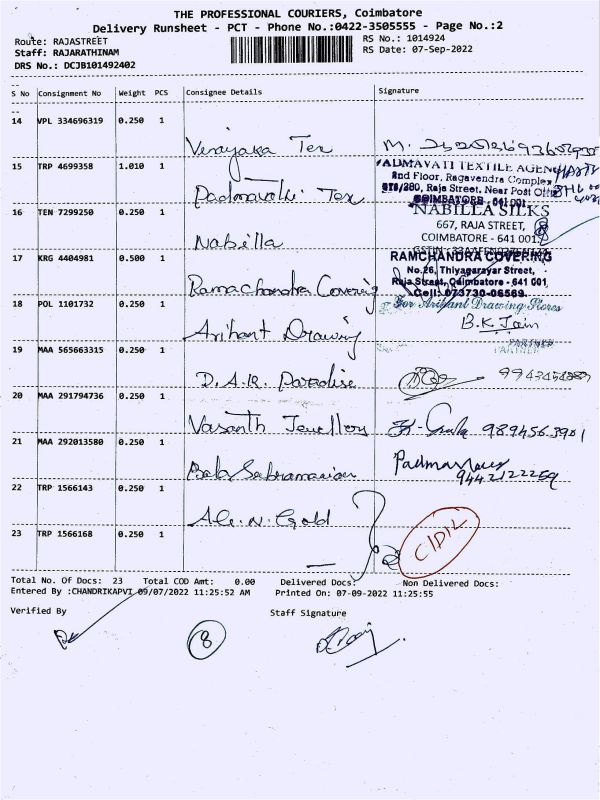 THE PROFESSIONAL COURIERS, Coimbatore
Delivery Runsheet - PCT - Phone No.:0422-3505555 - Page No.:2
Route: RAJASTREET RS No.: 1014924
Staff: RAJARATHINAM RS Date: 07-Sep-2022
DRS No.: DCJB101492402
S No Consignment No Weight PCS Consignee Details Signature
14 VPL 334696319 0.250 1
Vinayaka Tex M.
15 TRP 4699358 1.010 1
PADMAVATI TEXTILE AGENCY
2nd Floor, Ragavendra Complex
Raja Street, Near Post Office
COIMBATORE - 641 001
Padmavathi Tex
16 TEN 7299250 0.250 1
NABILLA SILKS
667, RAJA STREET,
COIMBATORE - 641 001
Nabilla
17 KRG 4404981 0.500 1
RAMCHANDRA COVERING
No.26, Thiyagarayar Street,
Raja Street, Coimbatore - 641 001
Cell: 073730-06569
Ramachandra Covering
18 POL 1101732 0.250 1
For Arihant Drawing Stores
B.K Jain
PARTNER
Arihant Drawing
19 MAA 565663315 0.250 1
D.A.R. Paradise
20 MAA 291794736 0.250 1
Vasanth Jewellery 9894563901
21 MAA 292013580 0.250 1
Bala Subramanian 9442122269
22 TRP 1566143 0.250 1
Al. N. Gold
23 TRP 1566168 0.250 1
Total No. Of Docs: 23 Total COD Amt: 0.00 Delivered Docs: Non Delivered Docs:
Entered By :CHANDRIKAPVI 09/07/2022 11:25:52 AM Printed On: 07-09-2022 11:25:55
Verified By Staff Signature
8